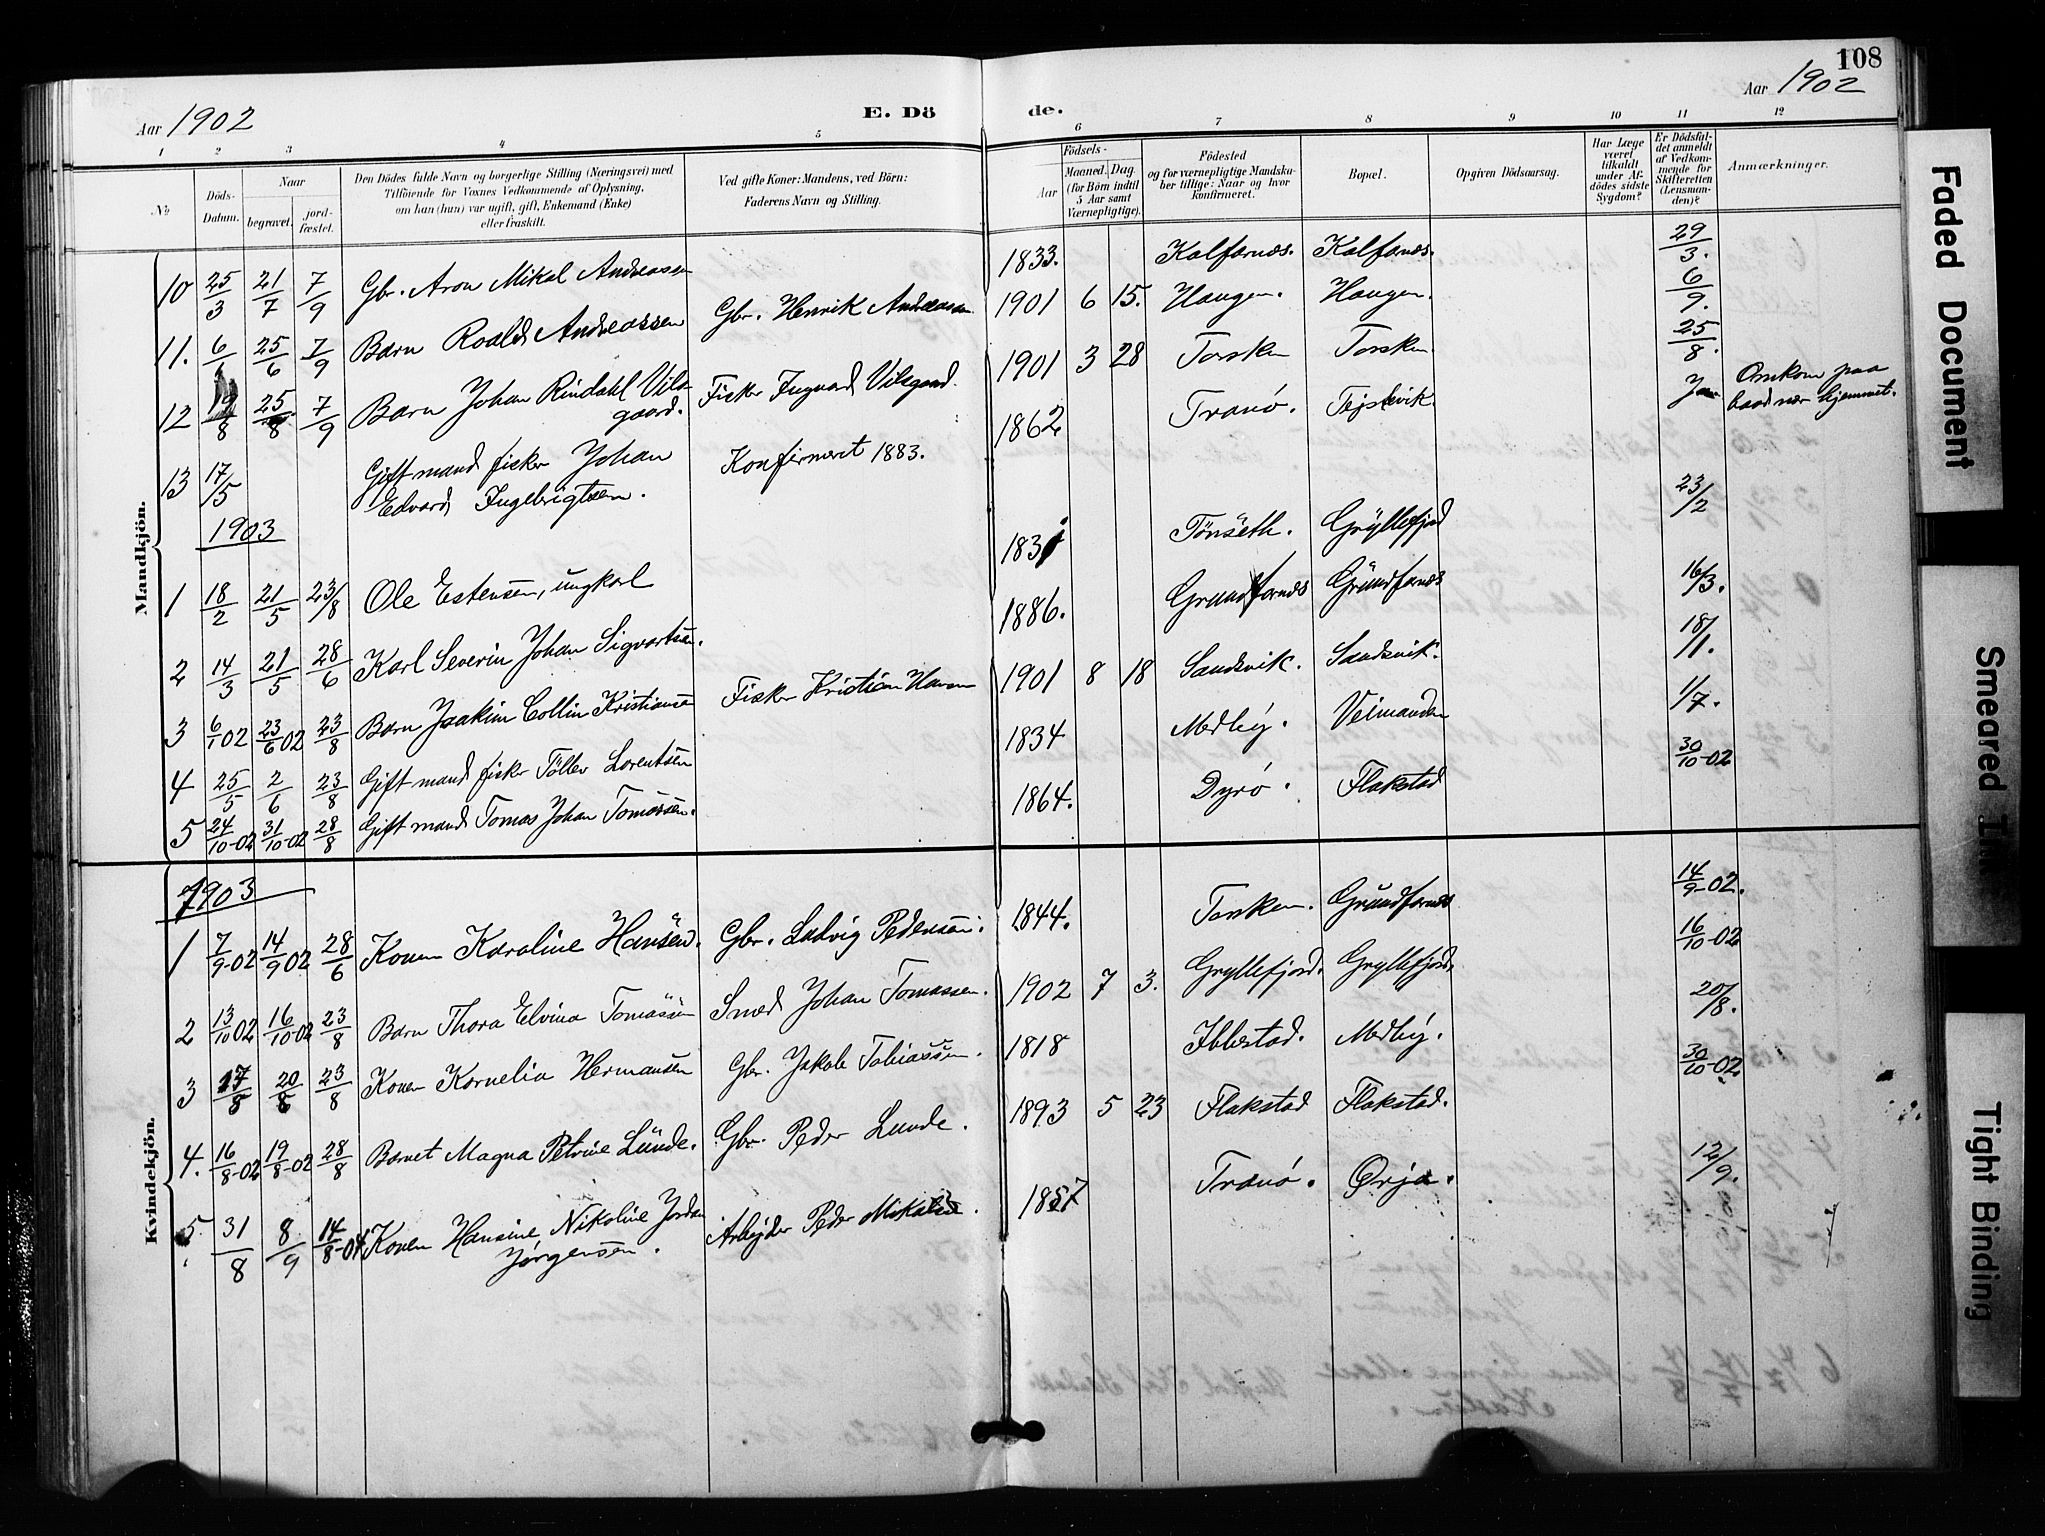 108
Aar 1902
E. Dö de.
Aar 1902
1 2 3 4 5 6 7 8 9 10 11 12
No
Döds-
Datum.
Naar
begravet.
jord-
fæstet.
Den Dödes fulde Navn og borgerlige Stilling (Næringsvei) med
Tilföiende for Voxnes Vedkommende af Oplysning,
om han (hun) var ugift, gift, Enkemand (Enke)
eller fraskilt.
Ved gifte Koner: Mandens, ved Börn:
Faderens Navn og Stilling.
Födsels-
Aar
Maaned. Dag
(for Börn indtil
5 Aar samt
Værnepligtige).
Födested
og for værnepligtige Mandska-
ber tillige: Naar og hvor
konfirmeret.
Bopæl.
Opgiven Dödsaarsag.
Har Læge
været
tilkaldt
under Af-
dödes sidste
Sygdom?
Er Dödsfal-
det anmeldt
af Vedkom-
mende for
Skifteretten
(Lensman-
den)?
Anmærkninger.
Mandkjön.
10 25/3 21/7 7/9 Gbr. Aron Mikal Andreassen 1833. Kalfarnæs. Kalfarnæs. 29/3.
11. 6/ 25/6 7/9 Barn Roald Andreassen Gbr. Henrik Andreassen 1901 6 15. Haugen. Haugen. 6/9.
12 19/8 25/8 7/9 Barn Johan Rindahl Vils-
gaard. Fisker Ingvad Vilsgaard. 1901 3 28 Torsken Torsken 25/8.
13 17/5 Gift mand fisker Johan
Edvard Ingebrigtsen. Konfirmeret 1883. 1862 Tranö. Tejstvik. Ja Omkom paa
baad nær hjemmet.
1903
1 18/2 21/5 23/8 Ole Estensen, ungkarl 183 Tönseth. Gryllefjord 23/2
2 14/3 21/5 28/6 Karl Severin Johan Sigvartsen. 1886. Grundfarnes Grundfarnes 16/3.
3 6/1 02 23/6 02 23/8 Barn Joakim Collin Kristiansen Fisker Kristian Hansen 1901 8 18 Sandsvik. Sandsvik. 18/1.
4 25/5 2/6 23/8 Gift mand fisker Töller Lorentsen 1834 Medby. Veimanden 1/7.
5 24/10-02 31/10-02 28/8 Gift mand Tomas Johan Tomassen. 1864. Dyrö. Flakstad 30/10-02
Kvindekjön.
1903
1 7/9-02 14/9 02 28/6 Konen Karoline Hansen. Gbr. Ludvig Pedersen. 1844. Torsken. Grundfarnes 14/9-02.
2 13/10 02 16/10-02 23/8 Barn Thora Elvina Tomassen Smed Johan Tomassen. 1902 7 3. Gryllefjord. Gryllefjord. 16/10-02
3 17/8 20/8 23/8 Konen Kornelia Hermansen Gbr. Jakob Tobiassen. 1818 Ibbestad. Medby. 20/8.
4. 16/8-02 19/8-02 28/8 Barnet Magna Petrine Lunde. Gbr. Peder Lunde. 1893 5 23 Flakstad Flakstad. 30/10-02
5 31/8 8/9 14/8-04 Konen Hansine Nikoline Jordan
Jörgensen. Arbejder Peder 1857 Tranö. Örja. 12/9.
Faded Document
Smeared Ink
Tight Binding